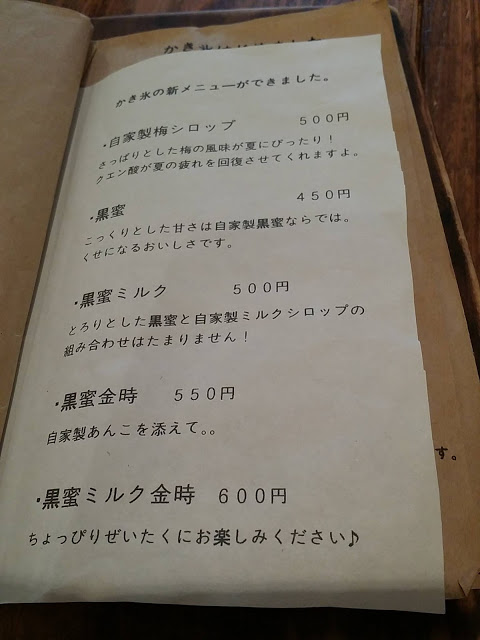 かき氷
かき氷の新メニューができました。
・自家製梅シロップ ５００円
さっぱりとした梅の風味が夏にぴったり！
クエン酸が夏の疲れを回復させてくれますよ。
・黒蜜 ４５０円
こっくりとした甘さは自家製黒蜜ならでは。
くせになるおいしさです。
・黒蜜ミルク ５００円
とろりとした黒蜜と自家製ミルクシロップの
組み合わせはたまりません！
・黒蜜金時 ５５０円
自家製あんこを添えて。。
す。
・黒蜜ミルク金時 ６００円
ちょっぴりぜいたくにお楽しみください♪